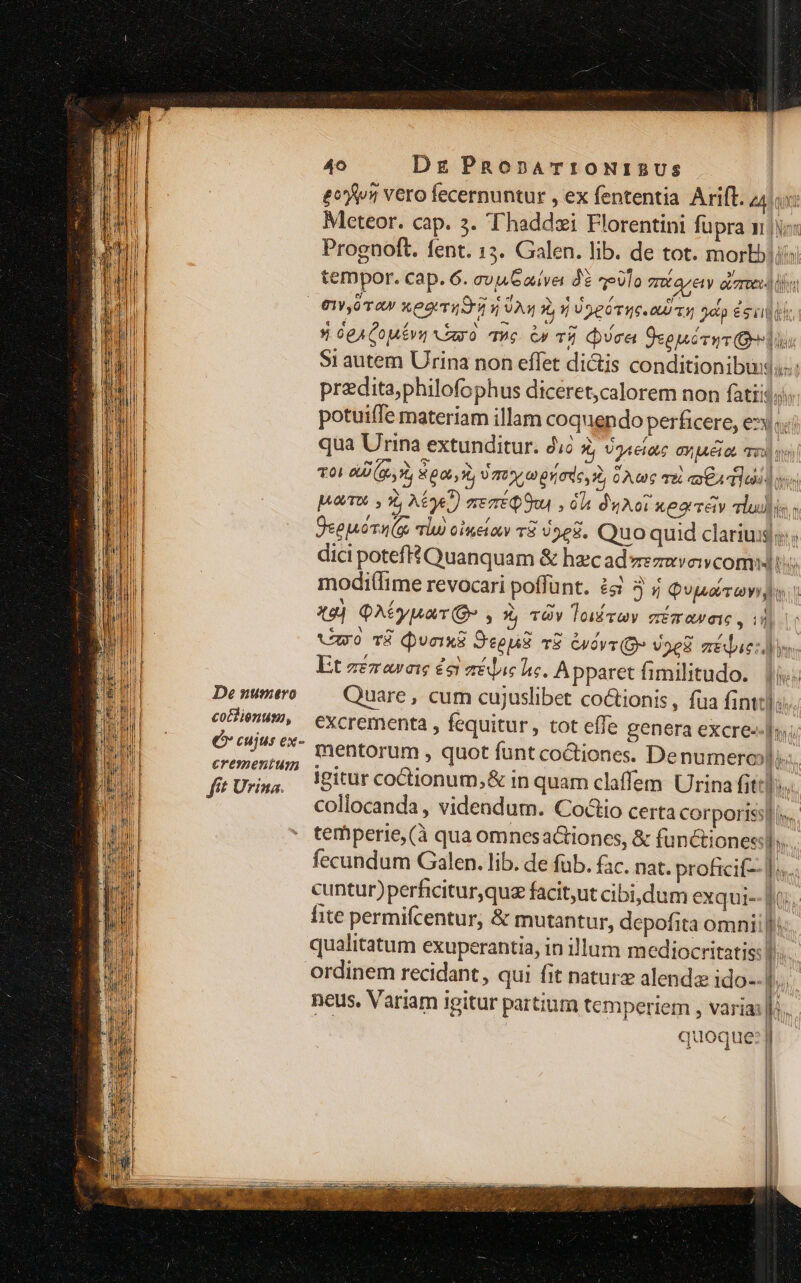 40 DE PROBATIONIBUS
vero ſecernuntur, ex ſententia Ariſt. 4
Meteor. cap. 3. Thaddæi Florentini ſupra 11
Prognoſt. ſent. 13. Galen. lib. de tot. morb
tempor. cap. 6. συμβαίνει δὲ τοῦτο πάσχειν
κρατηθῇ ἡ ὕλη καὶ ἡ ὑγρότης. αὕτη γάρ ἐστι
ἡ ὁριζομένη ὑπὸ τῆς ἐν τῇ φύσει θερμότητος
Si autem Urina non eſſet dictis conditionibus
prædita, philoſophus diceret, calorem non ſatis
potuiſſe materiam illam coquendo perficere, ex
qua Urina extunditur. διὸ καὶ ὑγιείας σημεῖα
καὶ οὖρα, καὶ ὑποχωρήσεις, καὶ ὅλως τὰ
καὶ λέγε) πεπέφθαι, ὅτι δηλοῖ κρατεῖν τὴν
θερμότητα τὴν οἰκείαν τοῦ ὑγροῦ. Quo quid clarius
dici poteſt? Quanquam & hæc ad πέπανσιν com-
modiſſime revocari poſſunt. ἔστι δ ἡ φυμάτων,
καὶ φλέγματος, καὶ τῶν τοιούτων πέπανσις, ἡ
ὑπὸ τοῦ φυσικοῦ θερμοῦ τοῦ ἐνόντος ὑγροῦ πέψις.
Et πέπανσις ἐστὶ πέψις τις. Apparet ſimilitudo.
De numero
coctionum,
& cujus ex-
crementum
fit Urina.
Quare, cum cujuslibet coctionis, ſua ſint
excrementa, ſequitur, tot eſſe genera excre-
mentorum, quot ſunt coctiones. De numero
igitur coctionum, & in quam claſſem Urina ſit
collocanda, videndum. Coctio certa corporis
temperie, (à qua omnes actiones, & functiones
ſecundum Galen. lib. de ſub. fac. nat. proficiſ-
cuntur) perficitur, quæ facit, ut cibi, dum exqui-
ſite permiſcentur, & mutantur, depoſita omni
qualitatum exuperantia, in illum mediocritatis
ordinem recidant, qui ſit naturæ alendæ ido-
neus. Variam igitur partium temperiem, varia
quoque